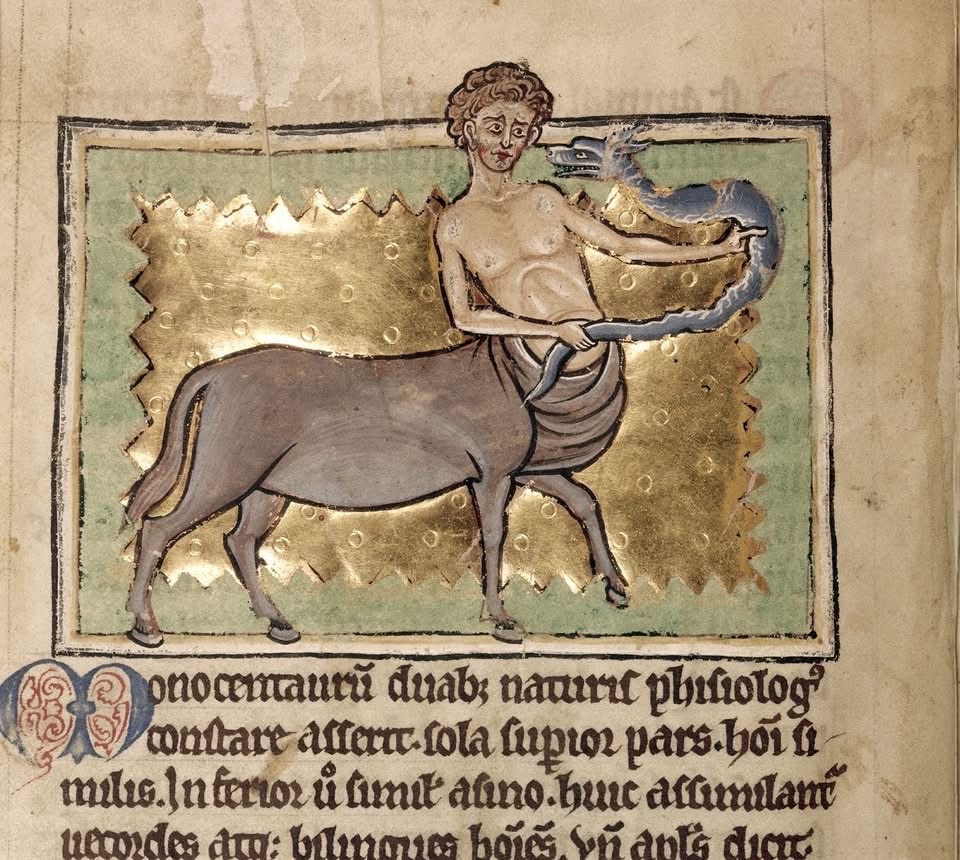 Monocentaurū duab; naturis phisiologꝰ
constare asserit. sola suꝑior pars. hoī si
milis. Inferior ů simił asino. huic assimilant᷑
uecordes atq; bilingues hoīēs. vñ apłs dicit.